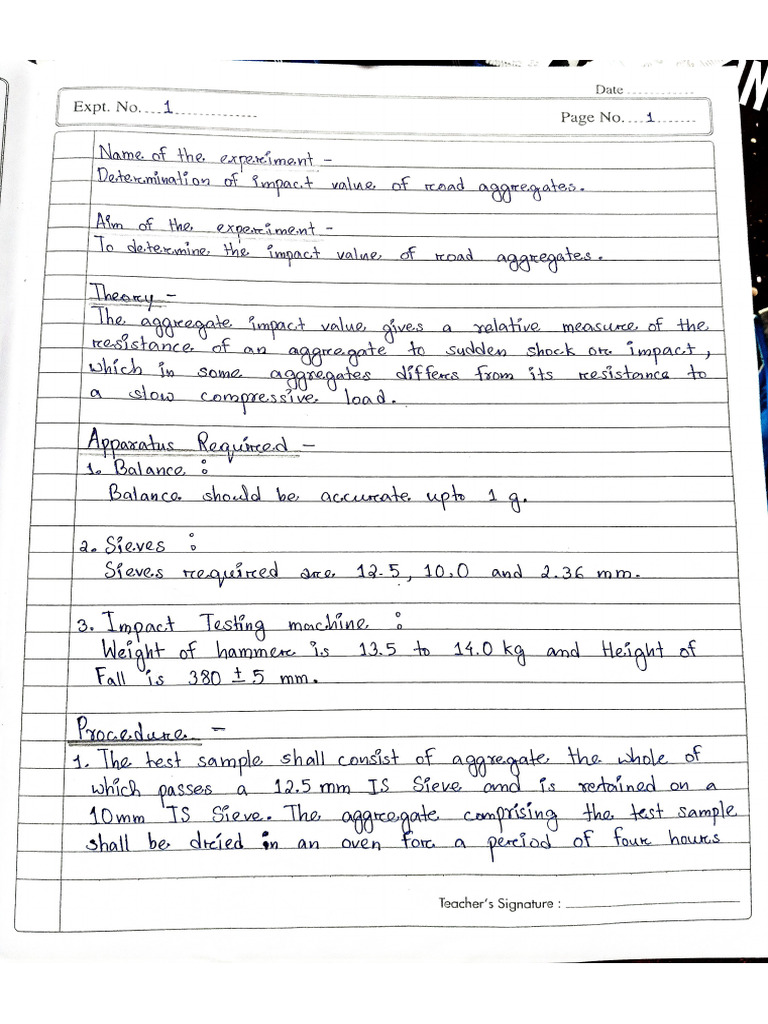 Date ............
Expt. No. ... 1 ..............
Page No. ... 1 .......
Name of the experiment -
Determination of impact value of road aggregates.
Aim of the experiment -
To determine the impact value of road aggregates.
Theory -
The aggregate impact value gives a relative measure of the
resistance of an aggregate to sudden shock or impact,
which in some aggregates differs from its resistance to
a slow compressive load.
Apparatus Required -
1. Balance :
Balance should be accurate upto 1 g.
2. Sieves :
Sieves required are 12.5, 10.0 and 2.36 mm.
3. Impact Testing machine :
Weight of hammer is 13.5 to 14.0 kg and Height of
Fall is 380 ± 5 mm.
Procedure -
1. The test sample shall consist of aggregate the whole of
which passes a 12.5 mm IS Sieve and is retained on a
10mm IS Sieve. The aggregate comprising the test sample
shall be dried in an oven for a period of four hours
Teacher's Signature :